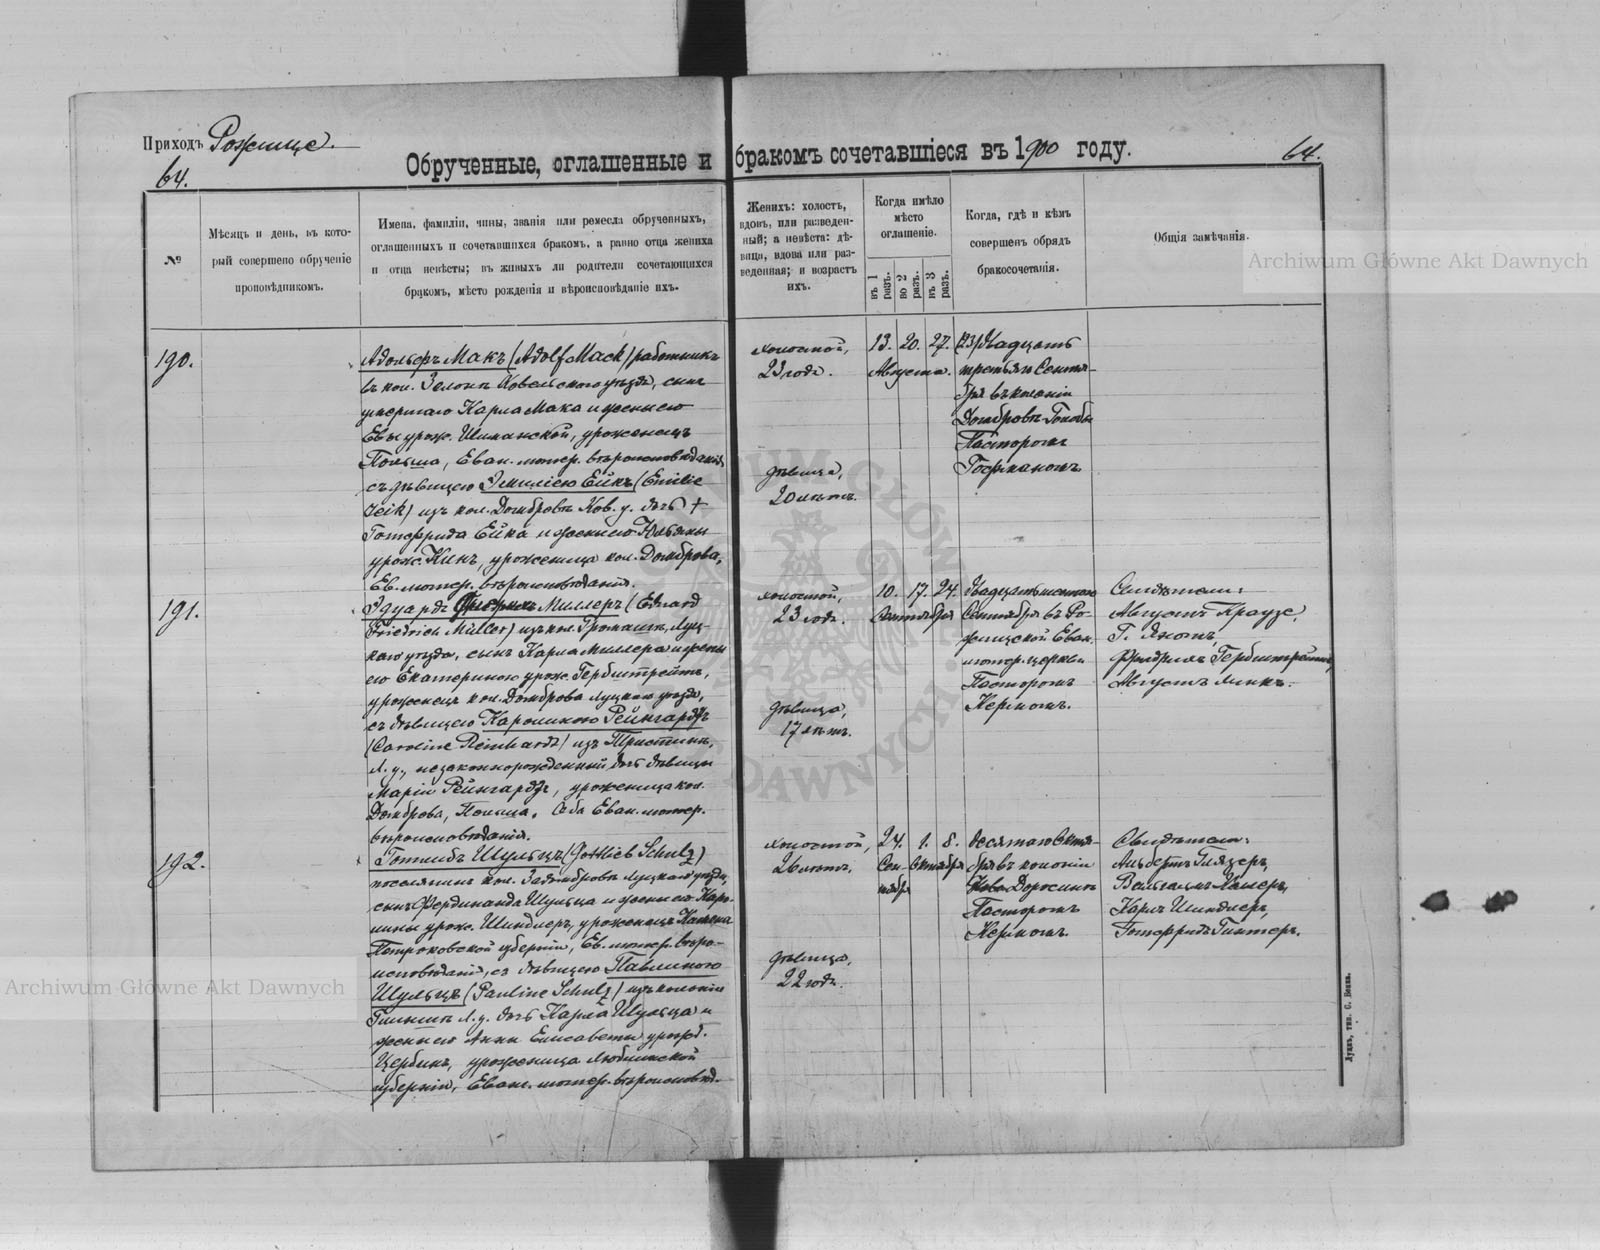 Приходъ Рожище.
64.
Обрученные, оглашенные и бракомъ сочетавшіеся въ 1900 году.
64.
№
Мѣсяцъ и день, въ кото-
рый совершено обрученіе
проповѣдникомъ.
Имена, фамиліи, чины, званія или ремесла обрученныхъ,
оглашенныхъ и сочетавшихся бракомъ, а равно отца жениха
и отца невѣсты; въ живыхъ ли родители сочетающихся
бракомъ, мѣсто рожденія и вѣроисповѣданіе ихъ.
Женихъ: холостъ,
вдовъ, или разведен-
ный; а невѣста: дѣ-
вица, вдова или раз-
веденная; и возрастъ
ихъ.
Когда имѣло
мѣсто
оглашеніе.
въ 1 разъ.
во 2 разъ.
въ 3 разъ.
Когда, гдѣ и кѣмъ
совершенъ обрядъ
бракосочетанія.
Общія замѣчанія.
190.
Адольфъ Макъ (Adolf Mack) работникъ
въ кол. Ковельскаго уѣзда, сынъ
умершаго Карла Мака и жены его
Евы урож. Шиманской, уроженецъ
Польша, Еван. лютер. вѣроисповѣданія
съ дѣвицею Эмиліею Ейкъ (Emilie
Jeik) изъ кол. Домбровъ Ков. у. дочь +
Готфрида Ейка и жены его Юльяны
урож. Кинъ, уроженица кол. Домброва,
Ев. лютер. вѣроисповѣданія.
холостой,
23 года.
дѣвица,
20 лѣтъ.
13. 20. 27.
Августа.
(23) Двадцать
третьяго Сентя-
бря въ колоніи
Домбровъ
Пасторомъ
Гофманомъ
191.
Эдуардъ Фридрихъ Миллеръ (Eduard
Friedrich Müller) изъ кол. Луц-
каго уѣзда, сынъ Карла Миллера и жены
его Екатерины урож. Гербштрейтъ,
уроженецъ кол. Домброва Луцкаго уѣзда,
съ дѣвицею Каролиною Рейнгардтъ
(Caroline Reinhardt) изъ
Л. у., незаконнорожденный дочь дѣвицы
Маріи Рейнгардтъ, уроженица кол.
Домброва, Польша. Оба Еван. лютер.
вѣроисповѣданія.
холостой,
23 года.
дѣвица,
17 лѣтъ.
10. 17. 24.
Сентября
Двадцать
Сентября въ Ро-
жищской Еван.
лютер. церкви
Пасторомъ
Кермомъ.
Свидѣтели:
Августъ Краузе,
Г. Яхотъ,
Фридрихъ Гербштрейтъ,
Августъ Линкъ.
192.
Готлибъ Шульцъ (Gottlieb Schulz)
поселянинъ кол. Задомбровъ Луцкаго уѣзда,
сынъ Фердинанда Шульца и жены его Каро-
лины урож. Шиндлеръ, уроженецъ
Петроковской губерніи, Ев. лютер. вѣро-
исповѣданія, съ дѣвицею Павлиною
Шульцъ (Pauline Schulz) изъ колоніи
Л. у. дочь Карла Шульца и
жены его Анны Елисаветы урожд.
Цербинъ, уроженица Люблинской
губерніи, Еван. лютер. вѣроисповѣд.
холостой,
26 лѣтъ.
дѣвица,
22 года.
24. 1. 8.
Сен- Октября
тября
Десятаго Октя-
бря въ колоніи
Доросинъ
Пасторомъ
Кермомъ.
Свидѣтели:
Альбертъ Глязеръ,
Вильгельмъ
Карлъ Шиндлеръ,
Готфридъ Гинтеръ.
Луцкъ, тип. С. Бекка.
Archiwum Główne Akt Dawnych
Archiwum Główne Akt Dawnych